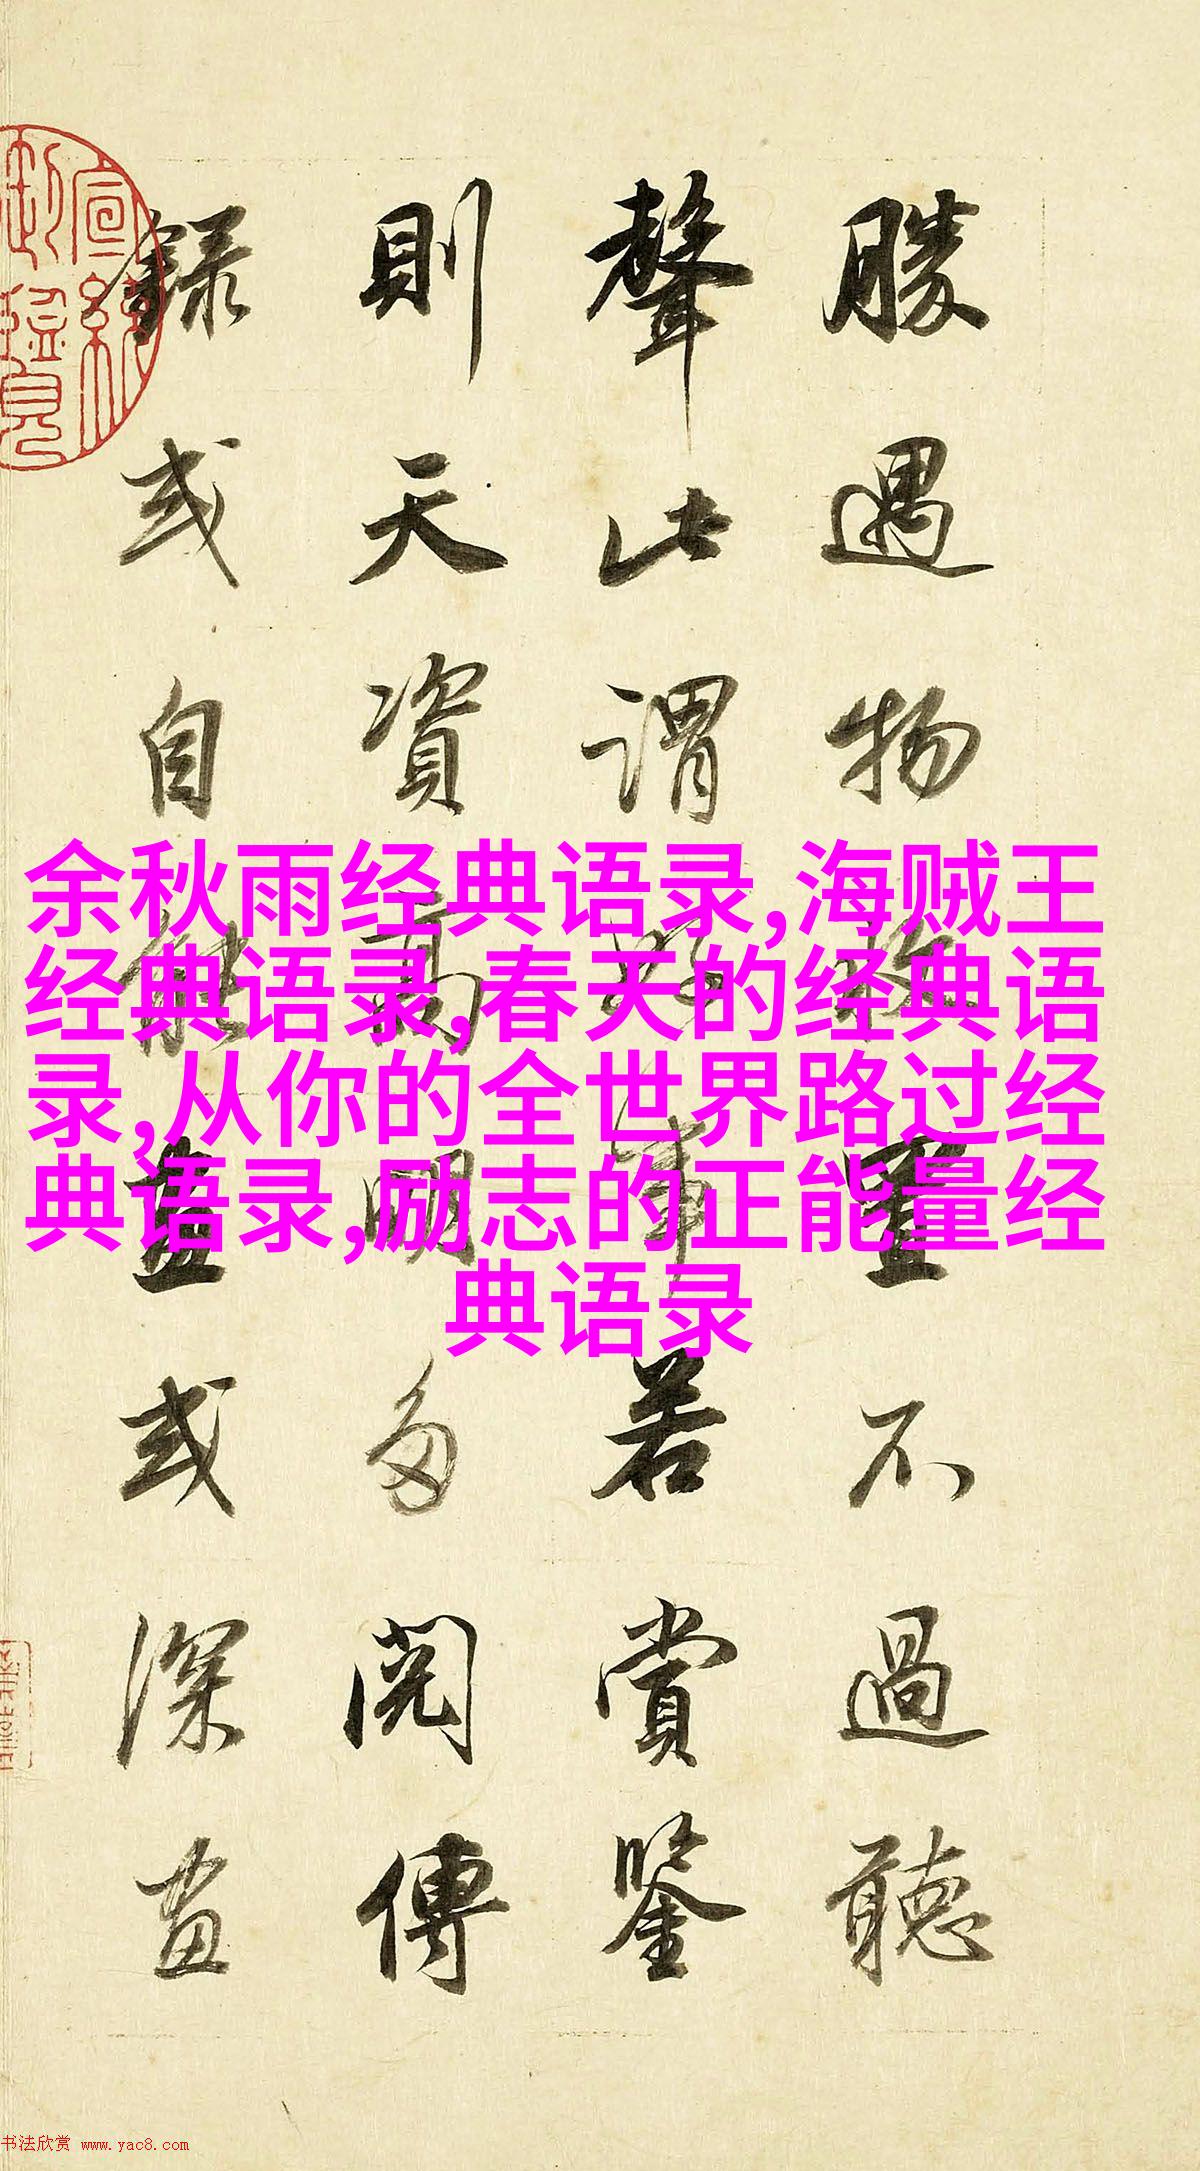 勝遇物收置不過聽
聲此謂好事若賞鑒
則天資高明多閱傳
錄或自能畫或深畫
宣統
御覽
余秋雨经典语录,海贼王
经典语录,春天的经典语
录,从你的全世界路过经
典语录,励志的正能量经
典语录
书法欣赏 www.yac8.com